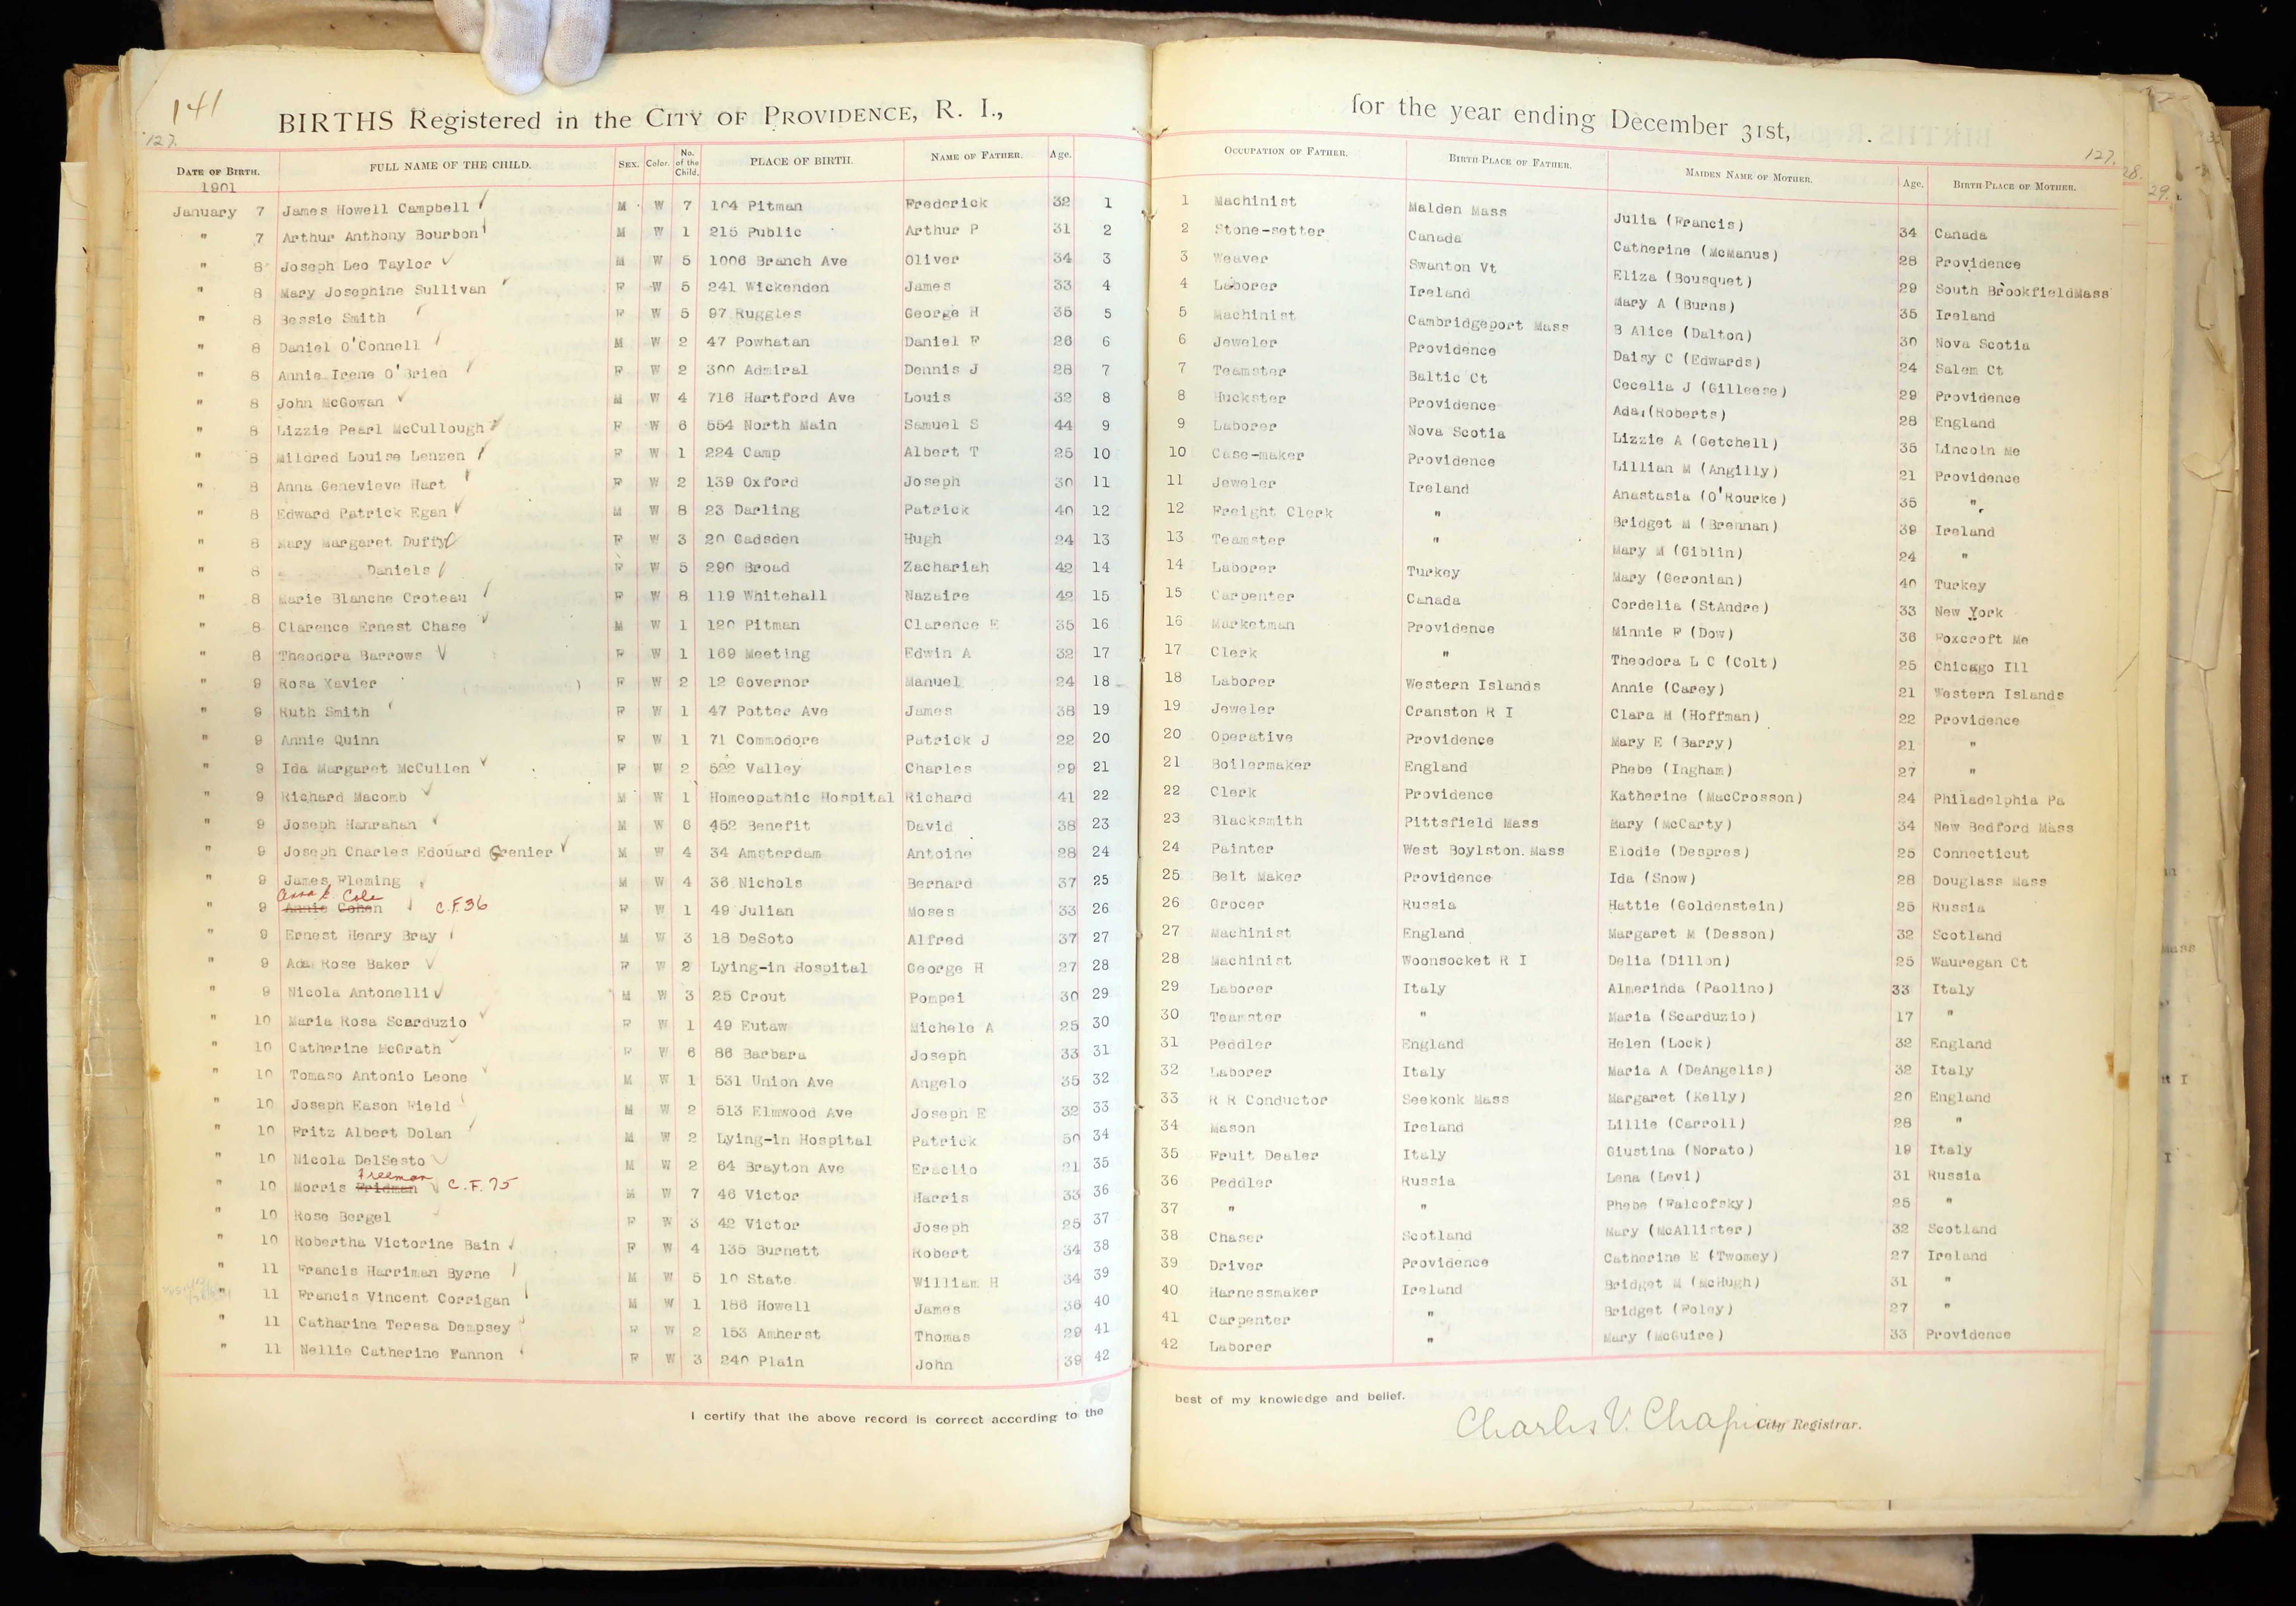 141
127.
BIRTHS Registered in the CITY OF PROVIDENCE, R. I.,
DATE OF BIRTH. FULL NAME OF THE CHILD. SEX. Color. No. of the Child. PLACE OF BIRTH. NAME OF FATHER. Age.
1901
January 7 James Howell Campbell M W 7 104 Pitman Frederick 32 1
" 7 Arthur Anthony Bourbon M W 1 215 Public Arthur P 31 2
" 8 Joseph Leo Taylor M W 5 1006 Branch Ave Oliver 34 3
" 8 Mary Josephine Sullivan F W 5 241 Wickenden James 33 4
" 8 Bessie Smith F W 5 97 Ruggles George H 35 5
" 8 Daniel O'Connell M W 2 47 Powhatan Daniel F 26 6
" 8 Annie Irene O'Brien F W 2 300 Admiral Dennis J 28 7
" 8 John McGowan M W 4 716 Hartford Ave Louis 32 8
" 8 Lizzie Pearl McCullough F W 6 554 North Main Samuel S 44 9
" 8 Mildred Louise Lenzen F W 1 224 Camp Albert T 25 10
" 8 Anna Genevieve Hart F W 2 139 Oxford Joseph 30 11
" 8 Edward Patrick Egan M W 8 23 Darling Patrick 40 12
" 8 Mary Margaret Duffy F W 3 20 Gadsden Hugh 24 13
" 8 Daniels F W 5 290 Broad Zachariah 42 14
" 8 Marie Blanche Croteau F W 8 119 Whitehall Nazaire 42 15
" 8 Clarence Ernest Chase M W 1 120 Pitman Clarence E 35 16
" 8 Theodora Barrows F W 1 169 Meeting Edwin A 32 17
" 9 Rosa Xavier F W 2 12 Governor Manuel 24 18
" 9 Ruth Smith F W 1 47 Potter Ave James 38 19
" 9 Annie Quinn F W 1 71 Commodore Patrick J 22 20
" 9 Ida Margaret McCullen F W 2 522 Valley Charles 29 21
" 9 Richard Macomb M W 1 Homeopathic Hospital Richard 41 22
" 9 Joseph Hanrahan M W 6 452 Benefit David 38 23
" 9 Joseph Charles Edouard Grenier M W 4 34 Amsterdam Antoine 28 24
" 9 James Fleming M W 4 36 Nichols Bernard 37 25
Cole
" 9 Annie Cohen C.F.36 F W 1 49 Julian Moses 33 26
" 9 Ernest Henry Bray M W 3 18 DeSoto Alfred 37 27
" 9 Ada Rose Baker F W 2 Lying-in Hospital George H 27 28
" 9 Nicola Antonelli M W 3 25 Crout Pompei 30 29
" 10 Maria Rosa Scarduzio F W 1 49 Eutaw Michele A 25 30
" 10 Catherine McGrath F W 6 86 Barbara Joseph 33 31
" 10 Tomaso Antonio Leone M W 1 531 Union Ave Angelo 35 32
" 10 Joseph Eason Field M W 2 513 Elmwood Ave Joseph E 32 33
" 10 Fritz Albert Dolan M W 2 Lying-in Hospital Patrick 50 34
" 10 Nicola DelSesto M W 2 64 Brayton Ave Eraclio 21 35
Freeman
" 10 Morris Fridman C.F.75 M W 7 46 Victor Harris 33 36
" 10 Rose Bergel F W 3 42 Victor Joseph 25 37
" 10 Robertha Victorine Bain F W 4 135 Burnett Robert 34 38
" 11 Francis Harriman Byrne M W 5 10 State William H 34 39
" 11 Francis Vincent Corrigan M W 1 186 Howell James 36 40
" 11 Catharine Teresa Dempsey F W 2 153 Amherst Thomas 29 41
" 11 Nellie Catherine Fannon F W 3 240 Plain John 39 42
I certify that the above record is correct according to the
for the year ending December 31st, .
127.
OCCUPATION OF FATHER. BIRTH-PLACE OF FATHER. MAIDEN NAME OF MOTHER. Age. BIRTH-PLACE OF MOTHER.
1 Machinist Malden Mass Julia (Francis) 34 Canada
2 Stone-setter Canada Catherine (McManus) 28 Providence
3 Weaver Swanton Vt Eliza (Bousquet) 29 South BrookfieldMass
4 Laborer Ireland Mary A (Burns) 35 Ireland
5 Machinist Cambridgeport Mass B Alice (Dalton) 30 Nova Scotia
6 Jeweler Providence Daisy C (Edwards) 24 Salem Ct
7 Teamster Baltic Ct Cecelia J (Gilleese) 29 Providence
8 Huckster Providence Ada (Roberts) 28 England
9 Laborer Nova Scotia Lizzie A (Getchell) 35 Lincoln Me
10 Case-maker Providence Lillian M (Angilly) 21 Providence
11 Jeweler Ireland Anastasia (O'Rourke) 35 "
12 Freight Clerk " Bridget M (Brennan) 39 Ireland
13 Teamster " Mary M (Giblin) 24 "
14 Laborer Turkey Mary (Geronian) 40 Turkey
15 Carpenter Canada Cordelia (StAndre) 33 New York
16 Marketman Providence Minnie F (Dow) 36 Foxcroft Me
17 Clerk " Theodora L C (Colt) 25 Chicago Ill
18 Laborer Western Islands Annie (Carey) 21 Western Islands
19 Jeweler Cranston R I Clara M (Hoffman) 22 Providence
20 Operative Providence Mary E (Barry) 21 "
21 Boilermaker England Phebe (Ingham) 27 "
22 Clerk Providence Katherine (MacCrosson) 24 Philadelphia Pa
23 Blacksmith Pittsfield Mass Mary (McCarty) 34 New Bedford Mass
24 Painter West Boylston Mass Elodie (Despres) 25 Connecticut
25 Belt Maker Providence Ida (Snow) 28 Douglass Mass
26 Grocer Russia Hattie (Goldenstein) 25 Russia
27 Machinist England Margaret M (Desson) 32 Scotland
28 Machinist Woonsocket R I Delia (Dillon) 25 Wauregan Ct
29 Laborer Italy Almerinda (Paolino) 33 Italy
30 Teamster " Maria (Scarduzio) 17 "
31 Peddler England Helen (Lock) 32 England
32 Laborer Italy Maria A (DeAngelis) 32 Italy
33 R R Conductor Seekonk Mass Margaret (Kelly) 20 England
34 Mason Ireland Lillie (Carroll) 28 "
35 Fruit Dealer Italy Giustina (Norato) 19 Italy
36 Peddler Russia Lena (Levi) 31 Russia
37 " " Phebe (Falcofsky) 25 "
38 Chaser Scotland Mary (McAllister) 32 Scotland
39 Driver Providence Catherine E (Twomey) 27 Ireland
40 Harnessmaker Ireland Bridget M (McHugh) 31 "
41 Carpenter " Bridget (Foley) 27 "
42 Laborer " Mary (McGuire) 33 Providence
best of my knowledge and belief.
Charles V. Chapin City Registrar.
28.
29.
Mass
R I